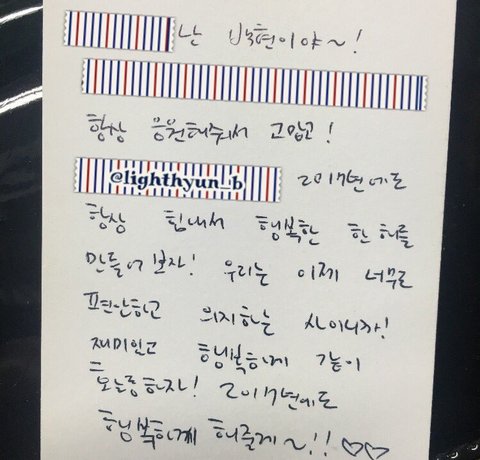 난 백현이야~!
항상 응원해줘서 고맙고!
@lighthyun_b 2017년에도
항상 힘내서 행복한 한 해를
만들어보자! 우리는 이제 너무로
편안하고 의지하는 사이니까!
재미있고 행복하게 같이
놀능하자! 2017년에도
행복하게 해줄게~!! ♡♡